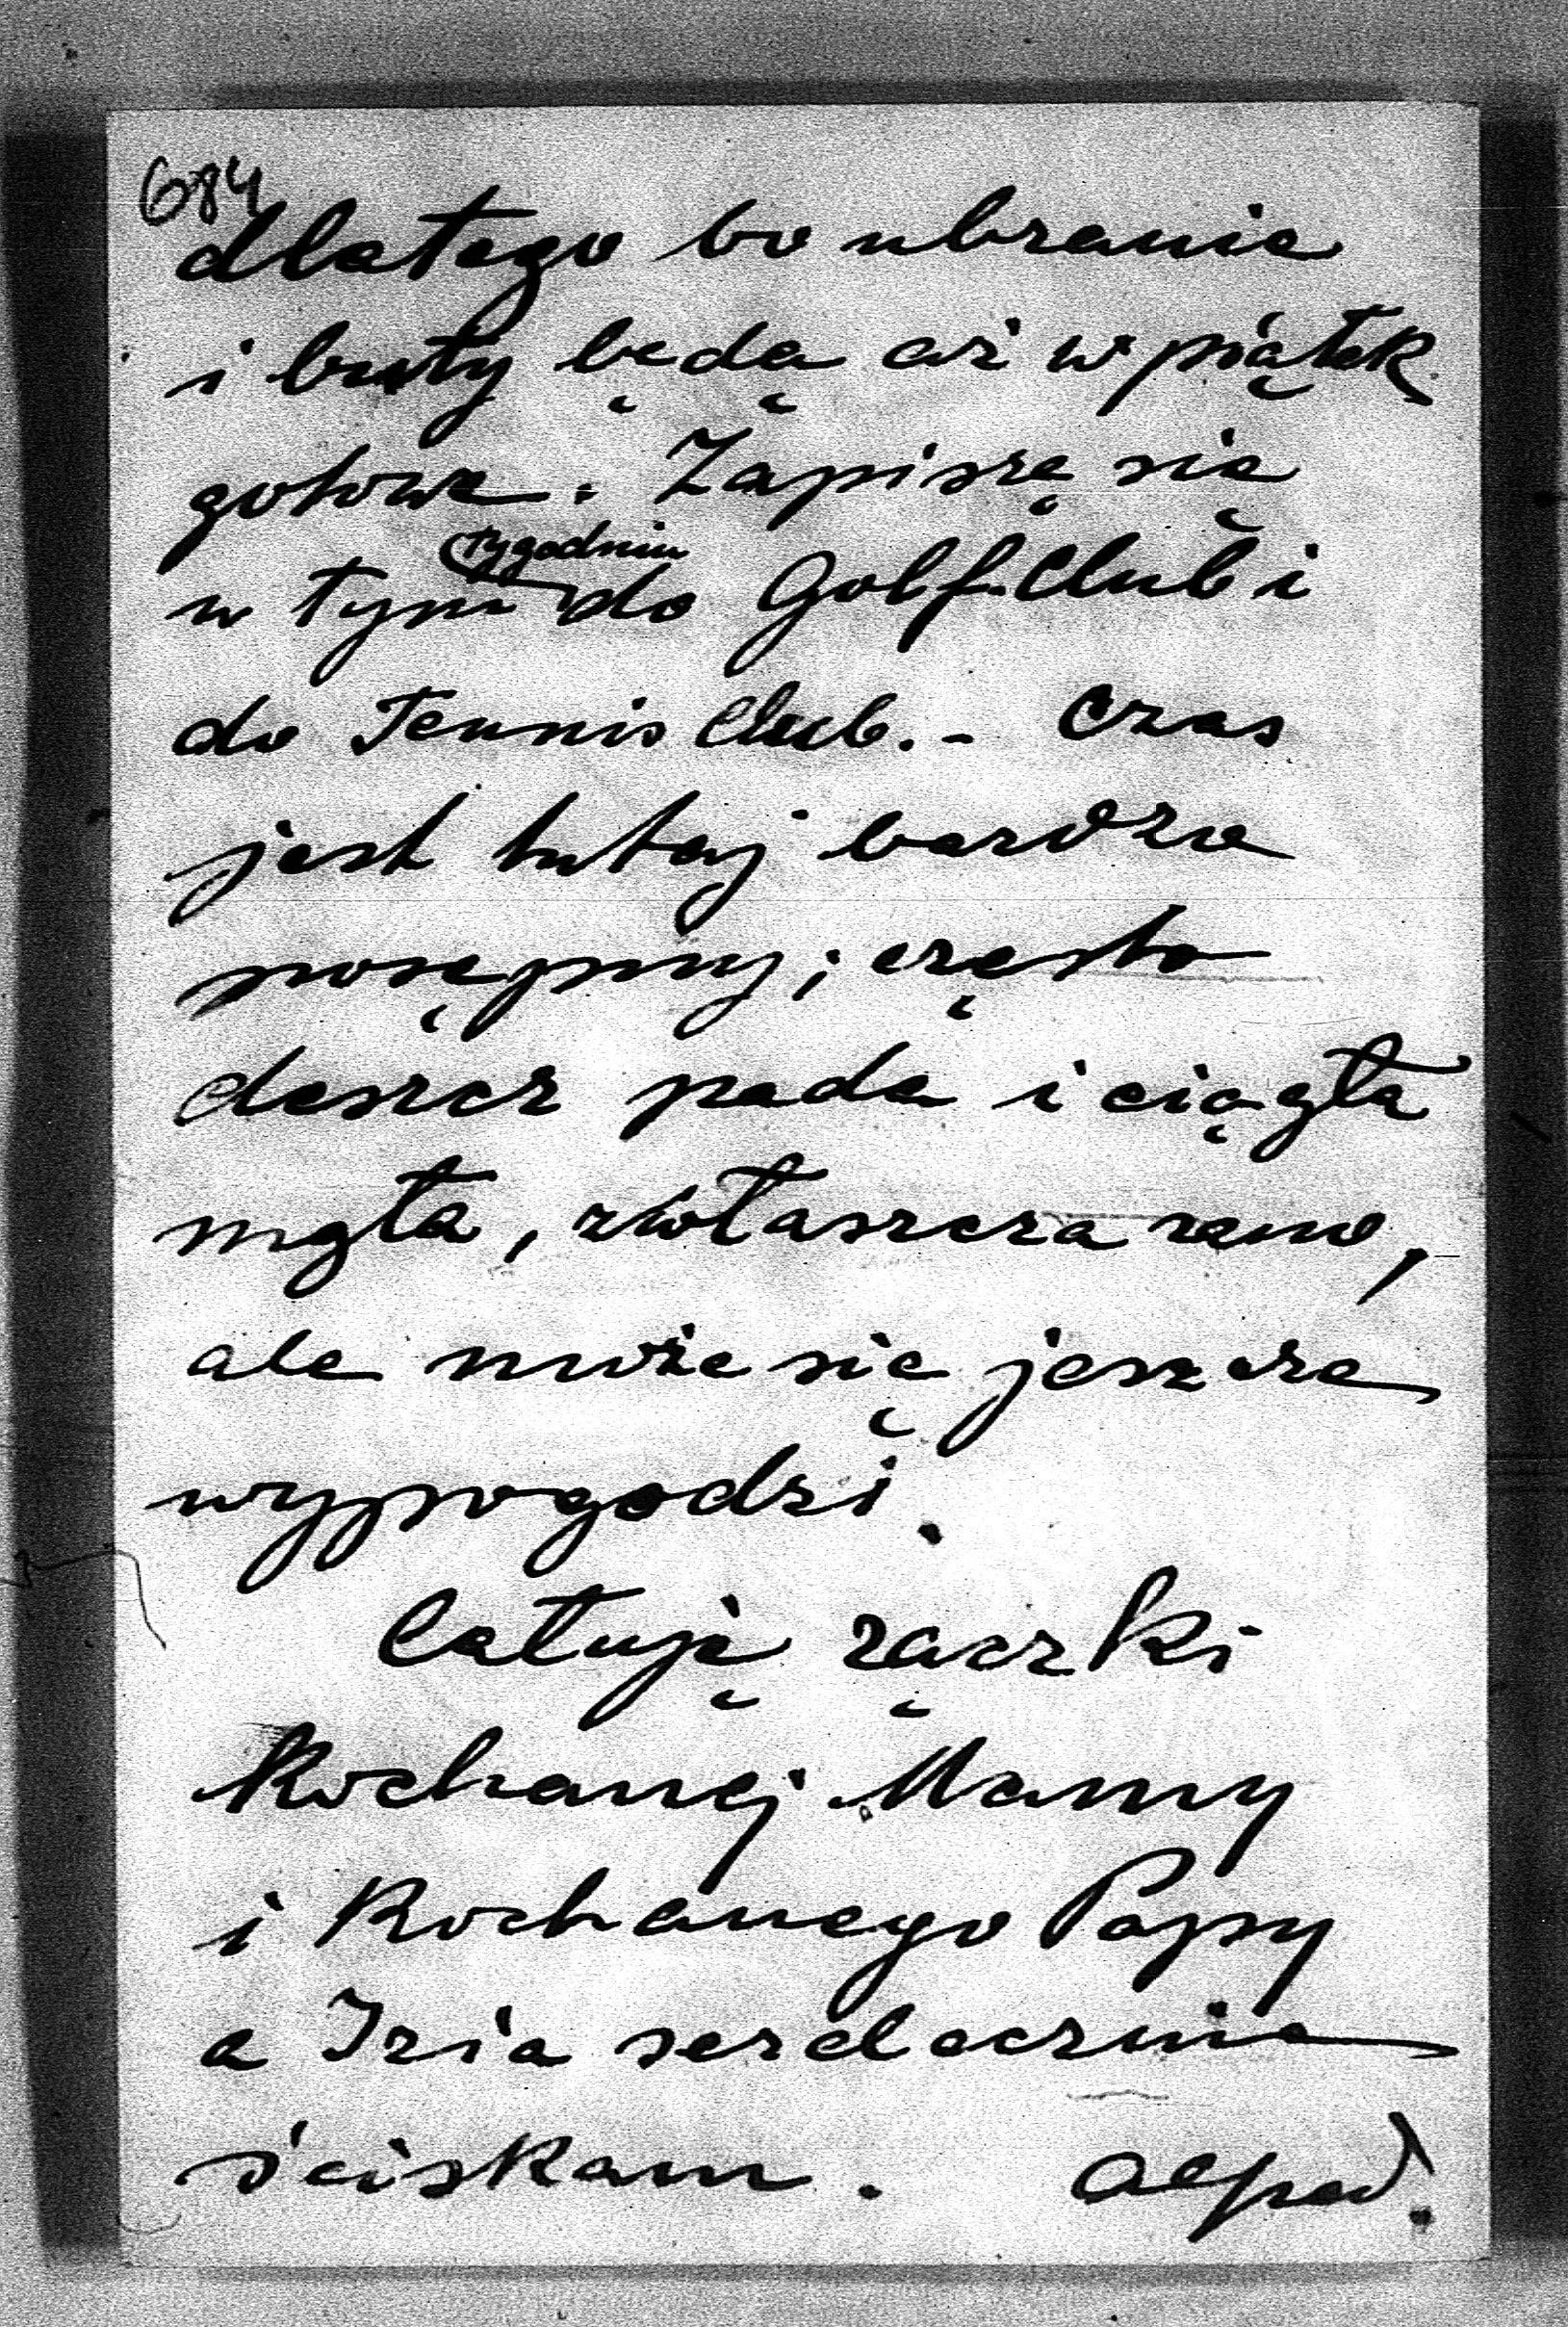 684
dlatego bo ubranie
i buty będą aż w piątek
gotowe. Zapiszę się
tygodniu
w tym do Golf-Club i
do Tennis Club. - Czas
jest tutaj bardzo
posępny; często
deszcz pada i ciągła
mgła, zwłaszcza rano,
ale może się jeszcze
wypogodzi.
Całuję rączki
Kochanej Mamy
i Kochanego Papy
a Izia serdecznie
ściskam. Alfred.